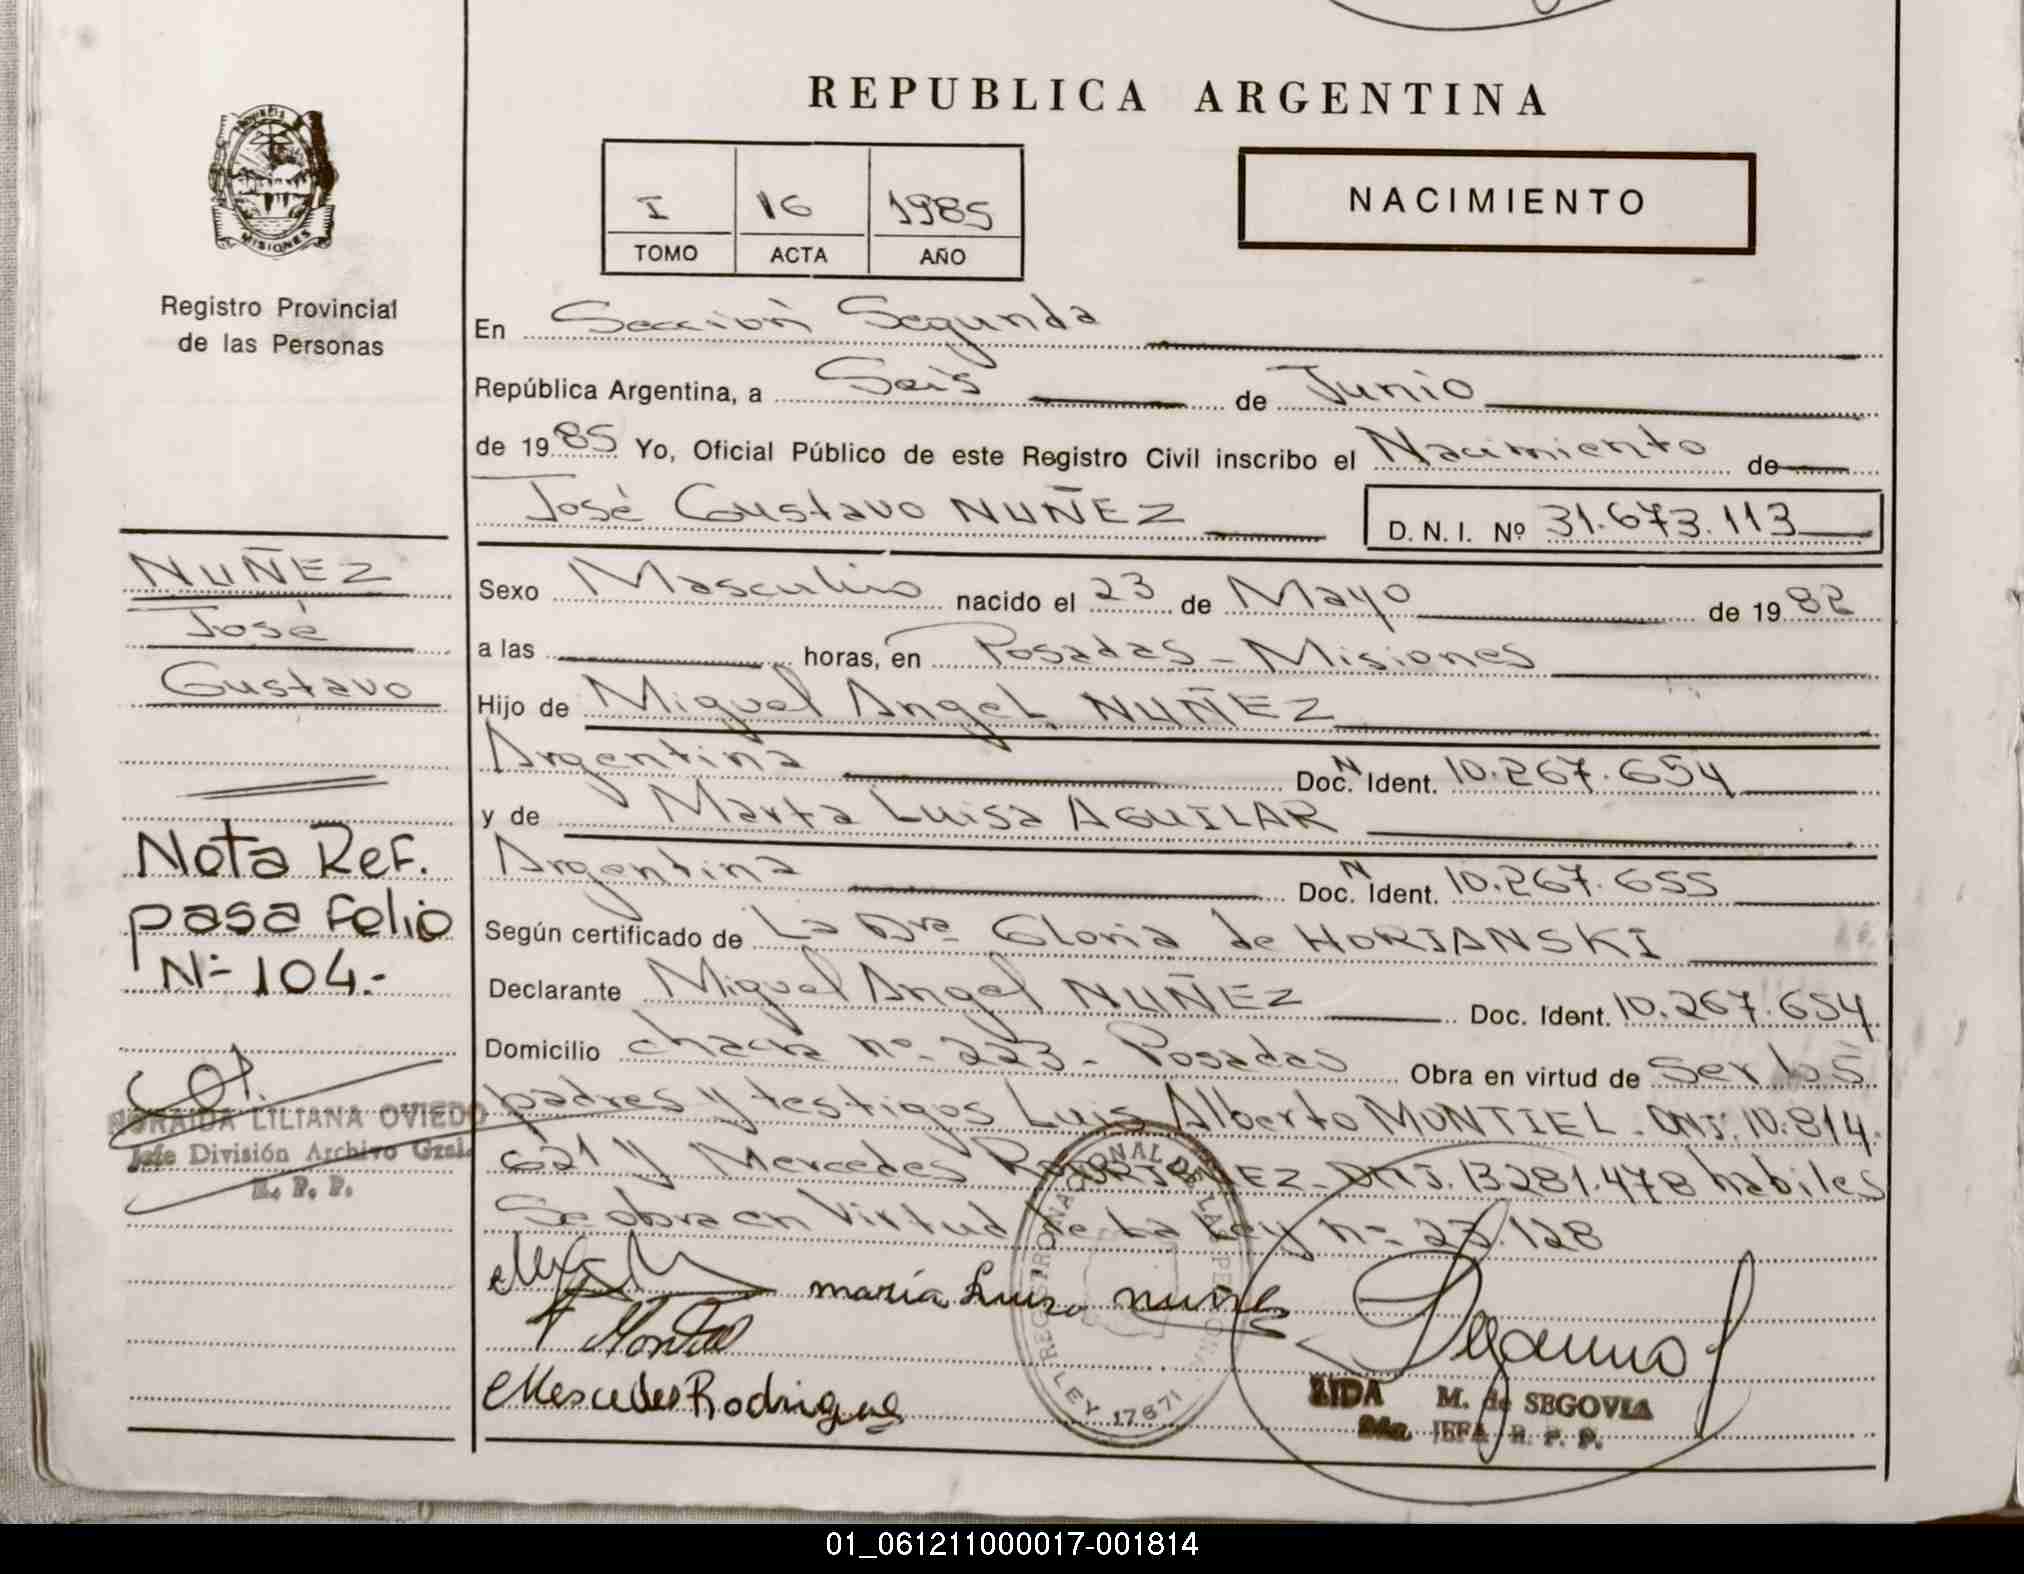 REPUBLICA ARGENTINA
PROVINCIA
MISIONES
Registro Provincial
de las Personas
I 16 1985
TOMO ACTA AÑO
NACIMIENTO
En Sección Segunda
República Argentina, a Seis de Junio
de 1985 Yo, Oficial Público de este Registro Civil inscribo el Nacimiento de
José Gustavo NUÑEZ D. N. I. Nº 31.673.113
Sexo Masculino nacido el 23 de Mayo de 1982
a las horas, en Posadas - Misiones
Hijo de Miguel Angel NUÑEZ
Argentina Doc. N Ident. 10.267.654
y de Marta Luisa AGUILAR
Argentina Doc. N Ident. 10.267.655
Según certificado de La Dra Gloria de HORIANSKI
Declarante Miguel Angel NUÑEZ Doc. Ident. 10.267.654
Domicilio chacra nº- 223 - Posadas Obra en virtud de Ser los
padres y testigos Luis Alberto MONTIEL - DNI. 10.814.
621 y Mercedes RODRIGUEZ - DNI. 13281.478 habiles
Se obra en Virtud de La Ley nº 23.128
maría Luisa nuñez
Montiel
Mercedes Rodriguez
REGISTRO NACIONAL DE LAS PERSONAS
LEY 17671
LIDA M. de SEGOVIA
JEFA R. P. P.
NUÑEZ
José
Gustavo
Nota Ref.
pasa Folio
Nº- 104.-
NORAIDA LILIANA OVIEDO
Jefe División Archivo Gral.
R. P. P.
01_061211000017-001814